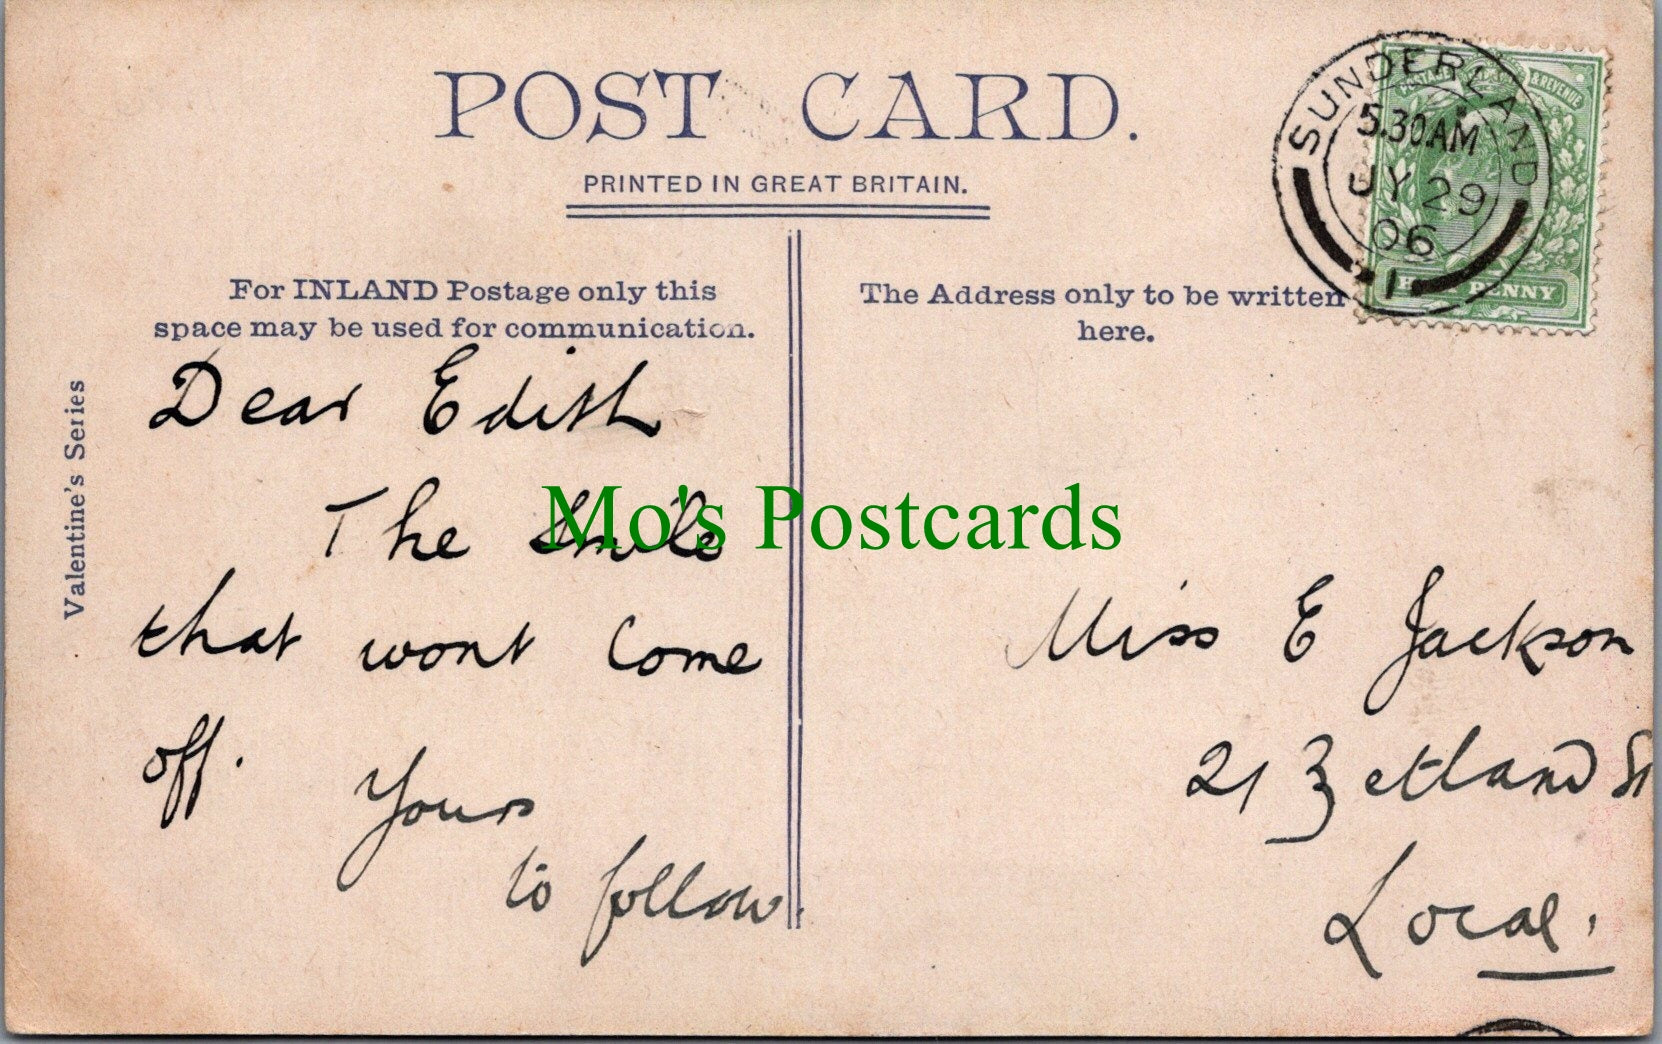 POST CARD.
PRINTED IN GREAT BRITAIN.
For INLAND Postage only this
space may be used for communication.
The Address only to be written
here.
SUNDERLAND
5.30AM
JY 29
06
1
POSTAGE & REVENUE
HALF PENNY
Valentine's Series
Dear Edith
The Smile
that wont Come
off.
Yours
to follow.
Mo's Postcards
Miss E Jackson
21 Zetland St
Local.